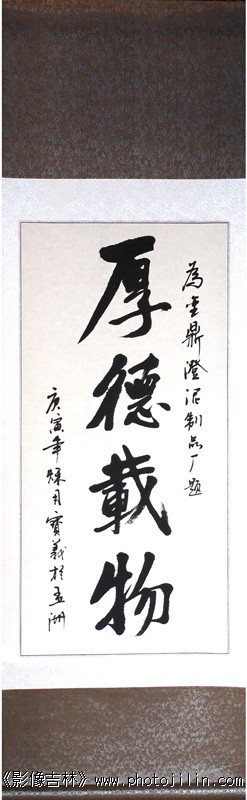 為金鼎澄泥制品厂题
厚德載物
庚寅年月寶義於孟洲
《影像吉林》www.photojilin.com